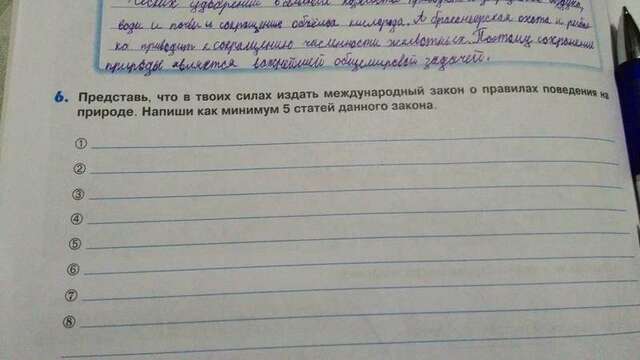 ческих удобрений в большом количестве приводит к загрязнению воздуха,
воды и почвы и сокращению объёма кислорода. А браконьерская охота и рыбал-
ка приводит к сокращению численности животных. Поэтому сохранение
природы является важнейшей общемировой задачей.
6. Представь, что в твоих силах издать международный закон о правилах поведения на
природе. Напиши как минимум 5 статей данного закона.
①
②
③
④
⑤
⑥
⑦
⑧